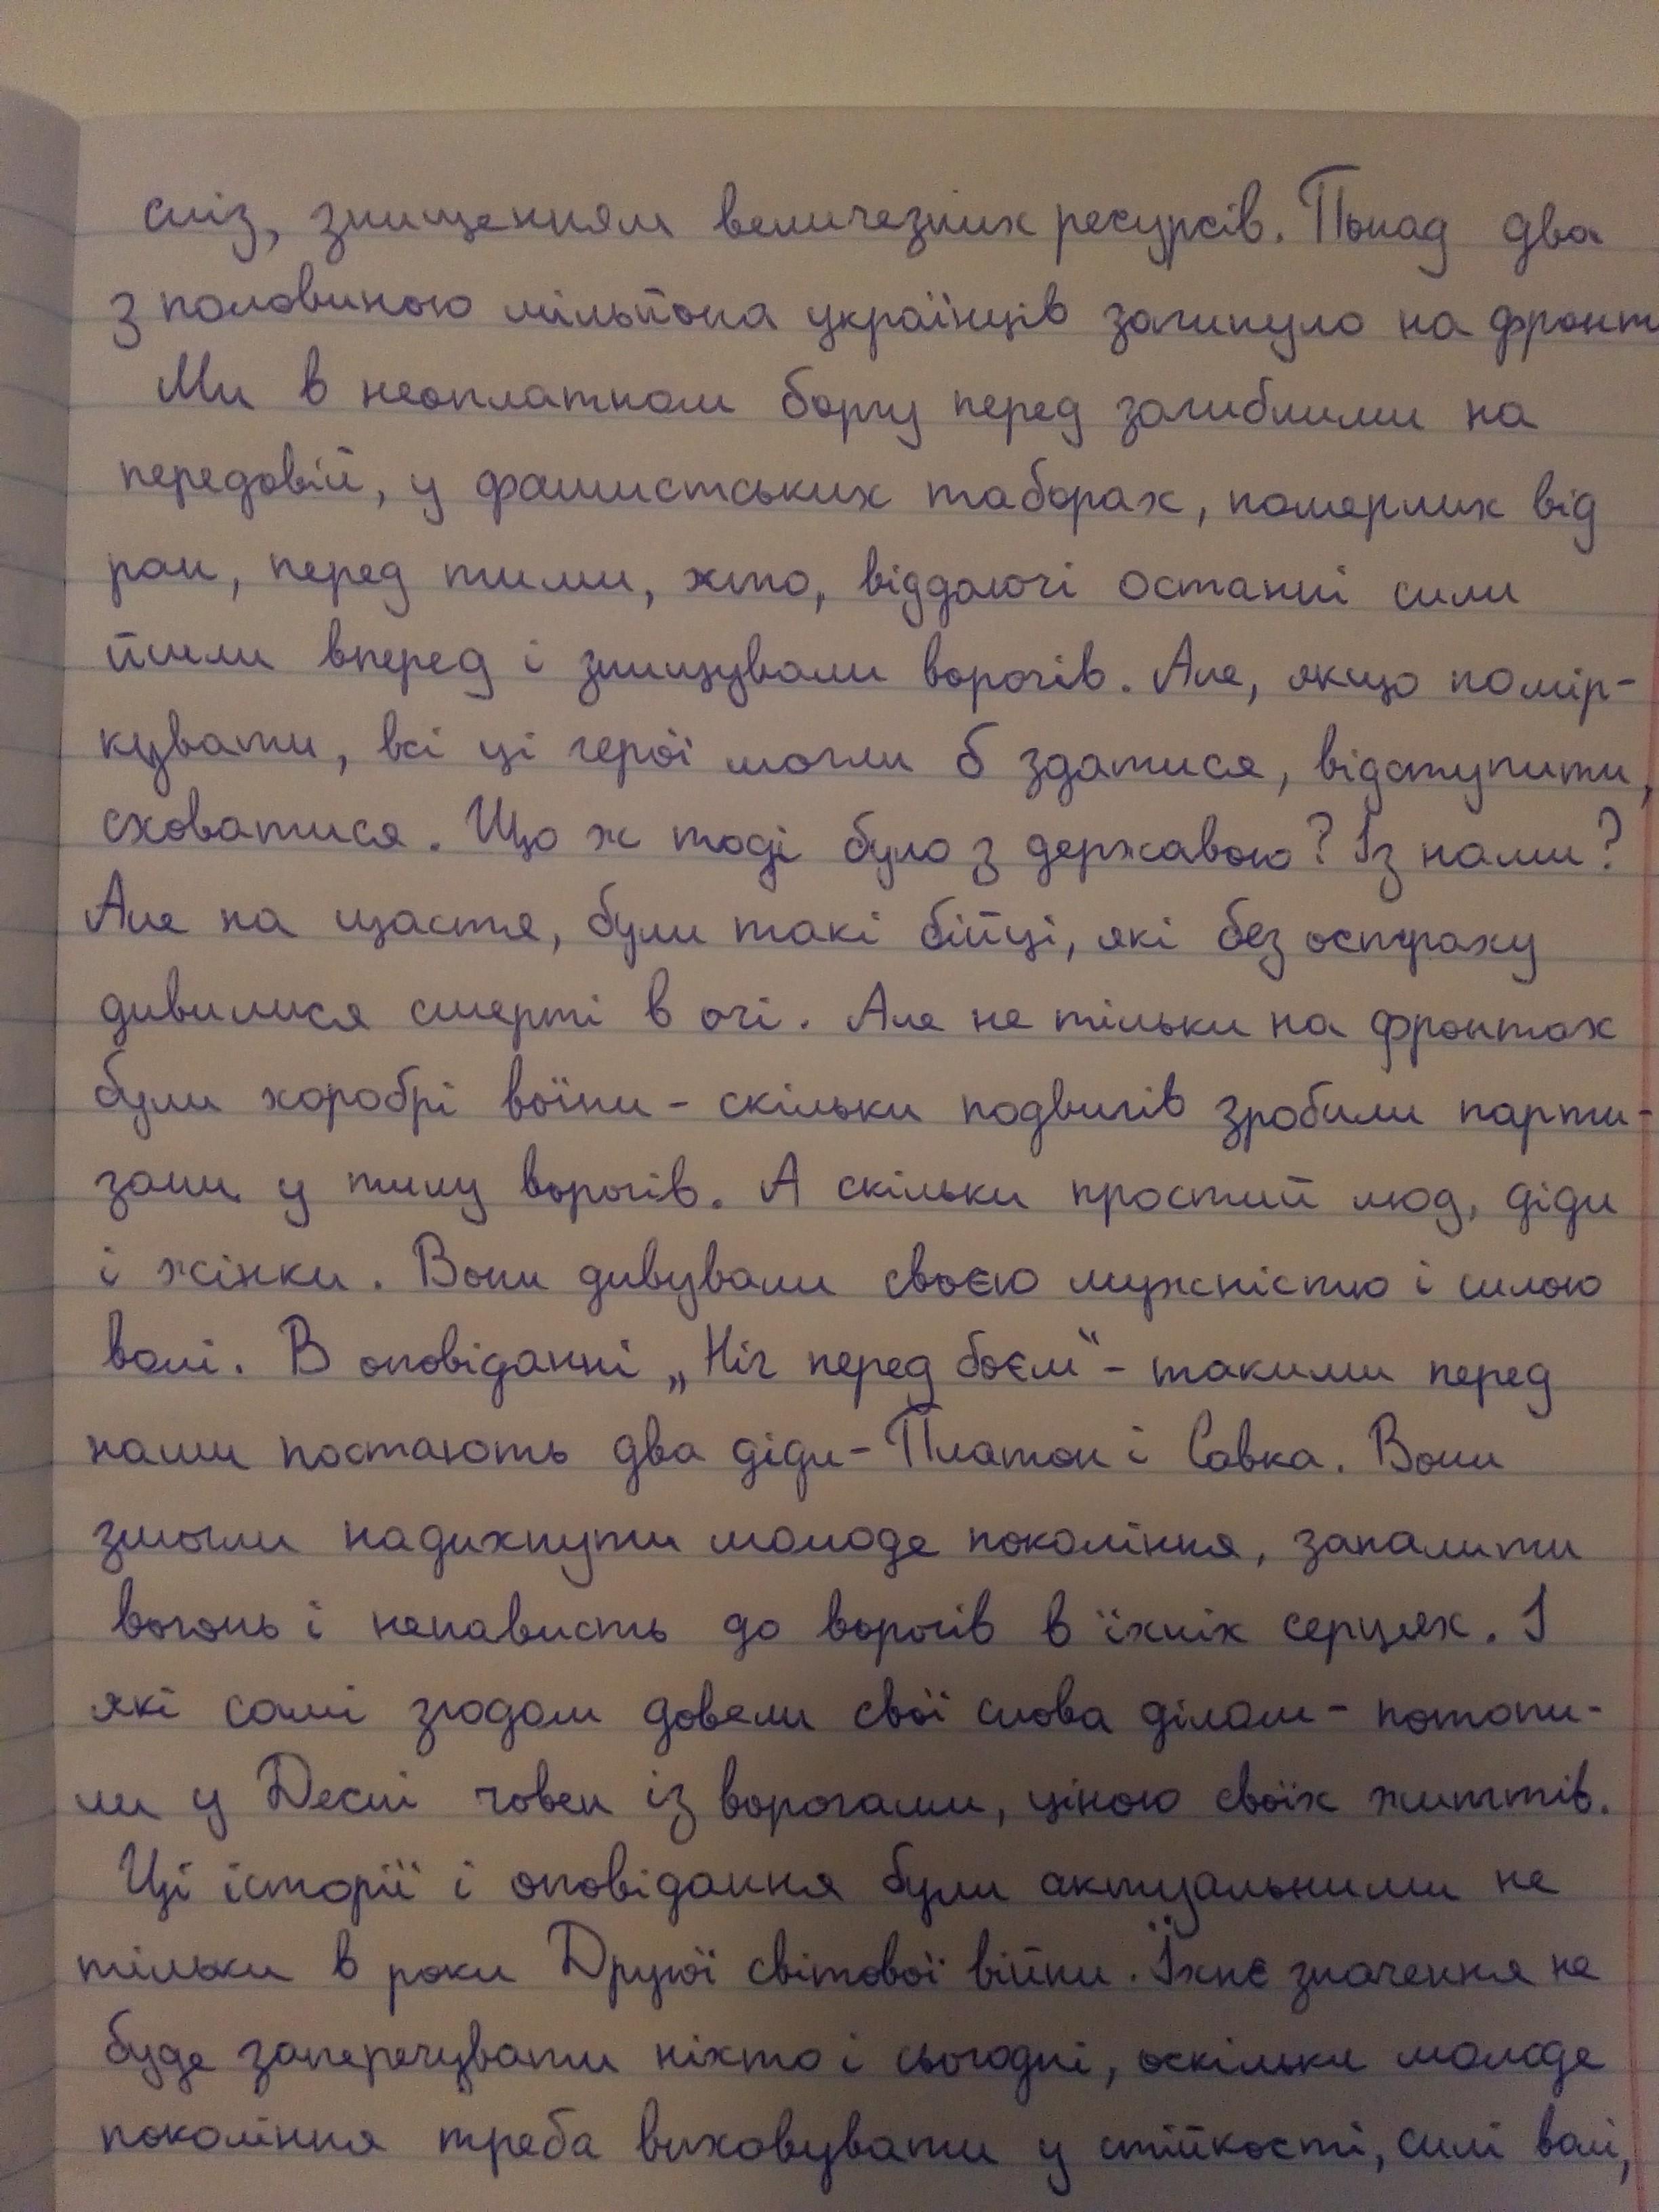 сліз, знищенням величезних ресурсів. Понад два
з половиною мільйона українців загинуло на фронт
Ми в неоплатном боргу перед загиблими на
передовій, у фашистських таборах, померлих від
ран, перед тими, хто, віддаючі останні сили
йшли вперед і знищували ворогів. Але, якщо помір-
кувати, всі ці герої могли б здатися, відступити,
сховатися. Що ж тоді було з державою? Із нами?
Але на щастя, були такі бійці, які без остраху
дивилися смерті в очі. Але не тільки на фронтах
були хоробрі воїни - скільки подвигів зробили парти-
зани у тилу ворогів. А скільки простий люд, діди
і жінки. Вони дивували своєю мужністю і силою
волі. В оповіданні „Ніч перед боєм“ - такими перед
нами постають два діди - Платон і Савка. Вони
змогли надихнути молоде покоління, запалити
вогонь і ненависть до ворогів в їхніх серцях. І
які самі згодом довели свої слова ділом - потопи-
ли у Десні човен із ворогами, ціною своїх життів.
Ці історії і оповідання були актуальними не
тільки в роки Другої світової війни. Їхнє значення не
буде заперечувати ніхто і сьогодні, оскільки молоде
покоління треба виховувати у стійкості, силі волі,